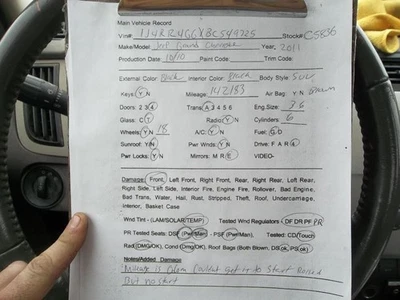 Main Vehicle Record
Vin#: 1J4RR4GGXBC549725 Stock# C5836
Make/Model: Jeep Grand Cherokee Year, 2011
Production Date: 10/10 Paint Code: Trim Code:
External Color: Black Interior Color: Black Body Style: SUV
Keys: Y N Mileage: 142183 Air Bag: Y N Blown
Doors: 2 3 4 Trans: A 3 4 5 6 Eng.Size: 3.6
Glass: C T Radio: Y N Cylinders: 6
Wheels: Y N 18 A/C: Y N Fuel: G D
Sunroof: Y N Pwr Wnds: Y N Drive: F A R 4
Pwr Locks: Y N Mirrors: M R E VIDEO-
Damage: Front, Left Front, Right Front, Rear, Right Rear, Left Rear,
Right Side, Left Side, Interior Fire, Engine Fire, Rollover, Bad Engine,
Bad Trans, Water, Hail, Rust, Stripped, Theft, Roof, Undercarriage,
Interior, Basket Case
Wnd Tint - (LAM/SOLAR/TEMP) Tested Wnd Regulators - DF DR PF PR
PR Tested Seats: DSF (Pwr/Man) - PSF (Pwr/Man), Tested: CD/Touch
Rad (DMG/OK), Cond (Dmg/OK), Roof Bags (Both Blown, DS ok, PS ok)
Notes/Added Damage
Mileage is from Couldnt get it to Start
But no start